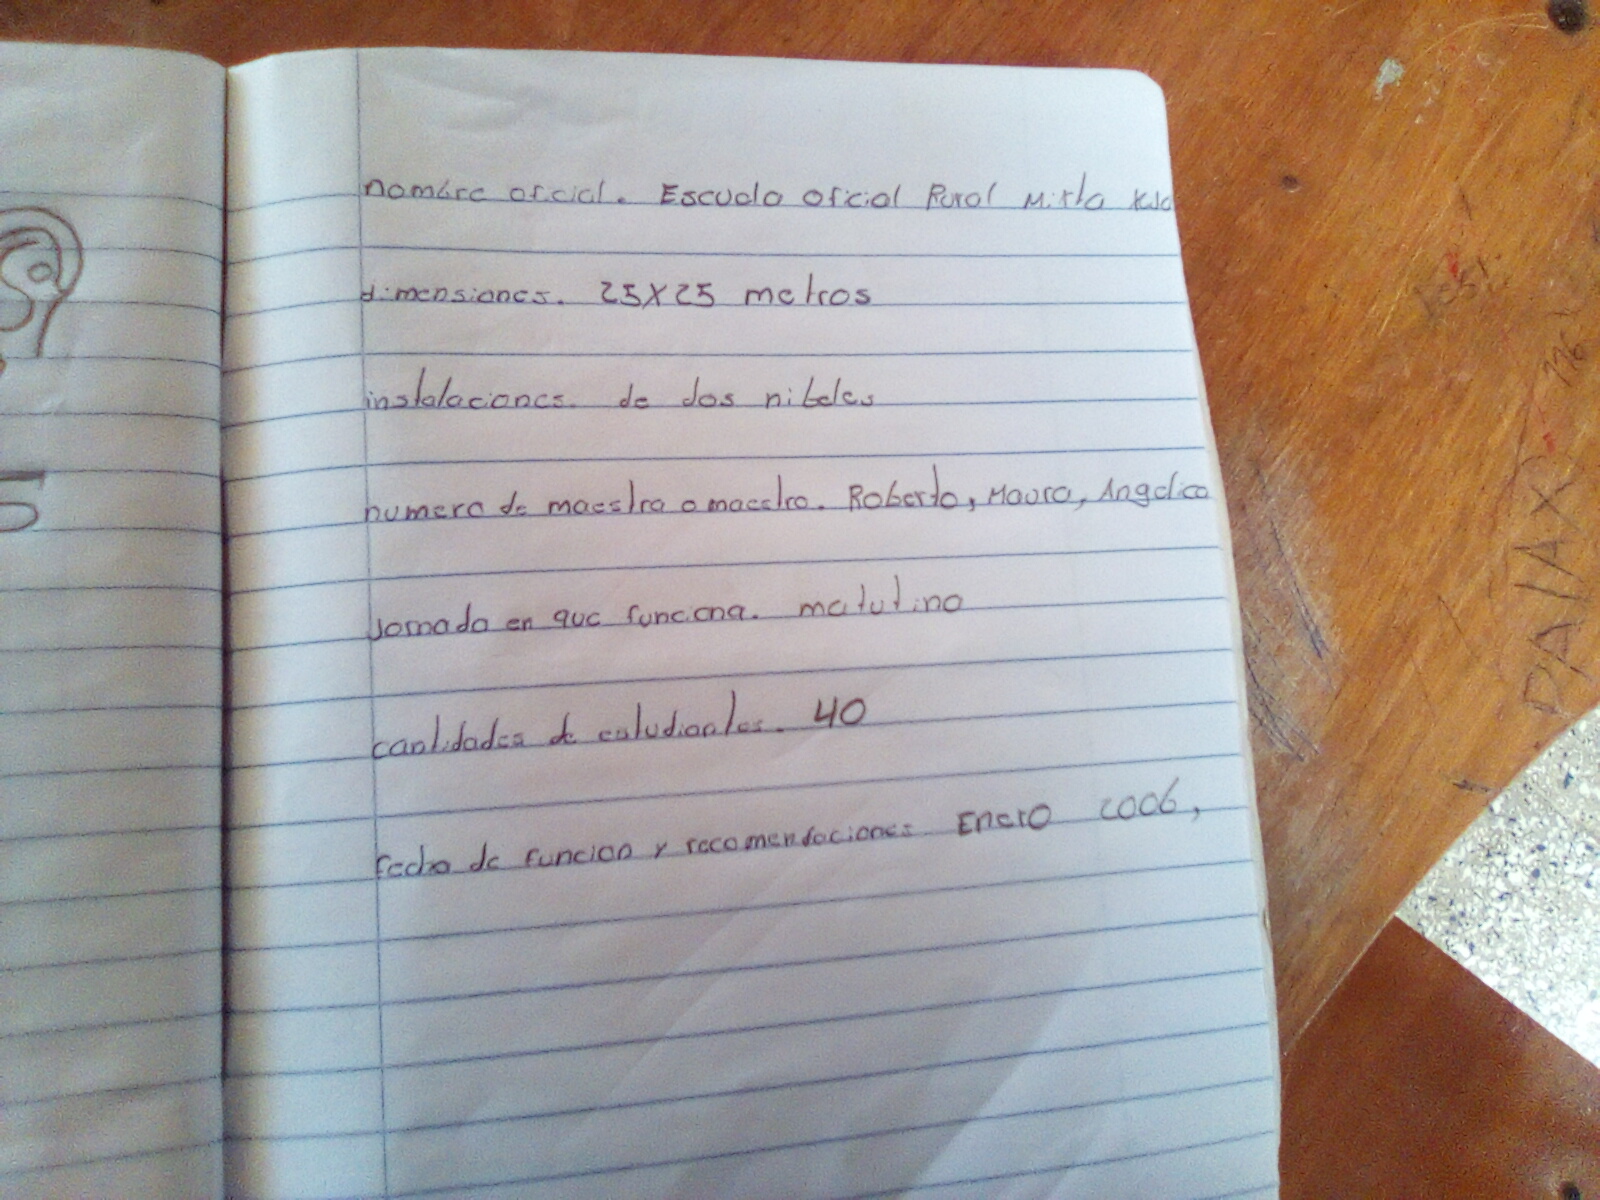 nombre oficial. Escuela oficial Rural Mixta
dimensiones. 25X25 metros
instalaciones. de dos nibeles
numero de maestra o maestro. Roberto, Maura, Angelica
Jornada en que funciona. matutino
cantidades de estudiantes. 40
fecha de funcion y recomendaciones Enero 2006,
5
PAIAX